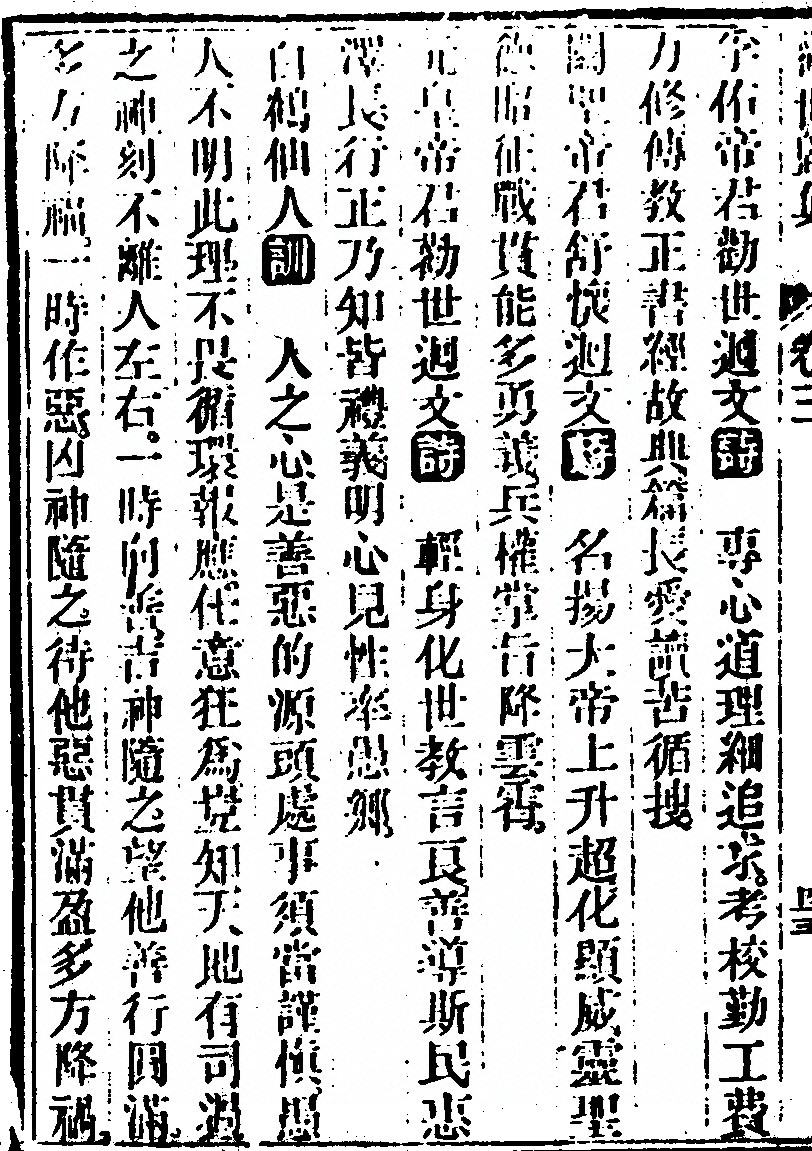 孚佑帝君勸世迴文詩　專心道理細追求。考校勤工費
力修傳教正書經故典篇長愛讀苦循搜。
關聖帝君舒懷迴文詩　名揚大帝上升超化顯威靈聖
德昭征戰貫能多勇義兵權掌旨降雲霄。
元皇帝君勸世迴文詩　輕身化世教言良善導斯民惠
澤長行正乃知皆禮義明心見性率愚
白鶴仙人訓　人之心是善惡的源頭處事須當謹慎愚
人不明此理不畏循環報應任意狂為豈知天地有司過
之神刻不離人左右。一時向善吉神隨之望他善行圓滿。
多方降福。一時作惡。凶神隨之。待他惡貫滿盈多方降禍。
卷三